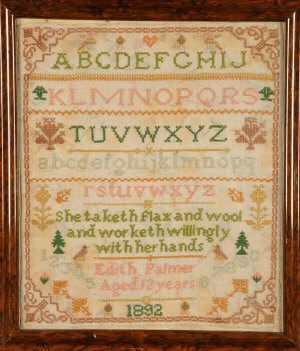 ABCDEFGHIJ
KLMNOPQRS
TUVWXYZ
abcdefghijklmnopq
rstuvwxyz
She taketh flax and wool
and worketh willingly
with her hands
Edith Palmer
Aged 12 years
1892